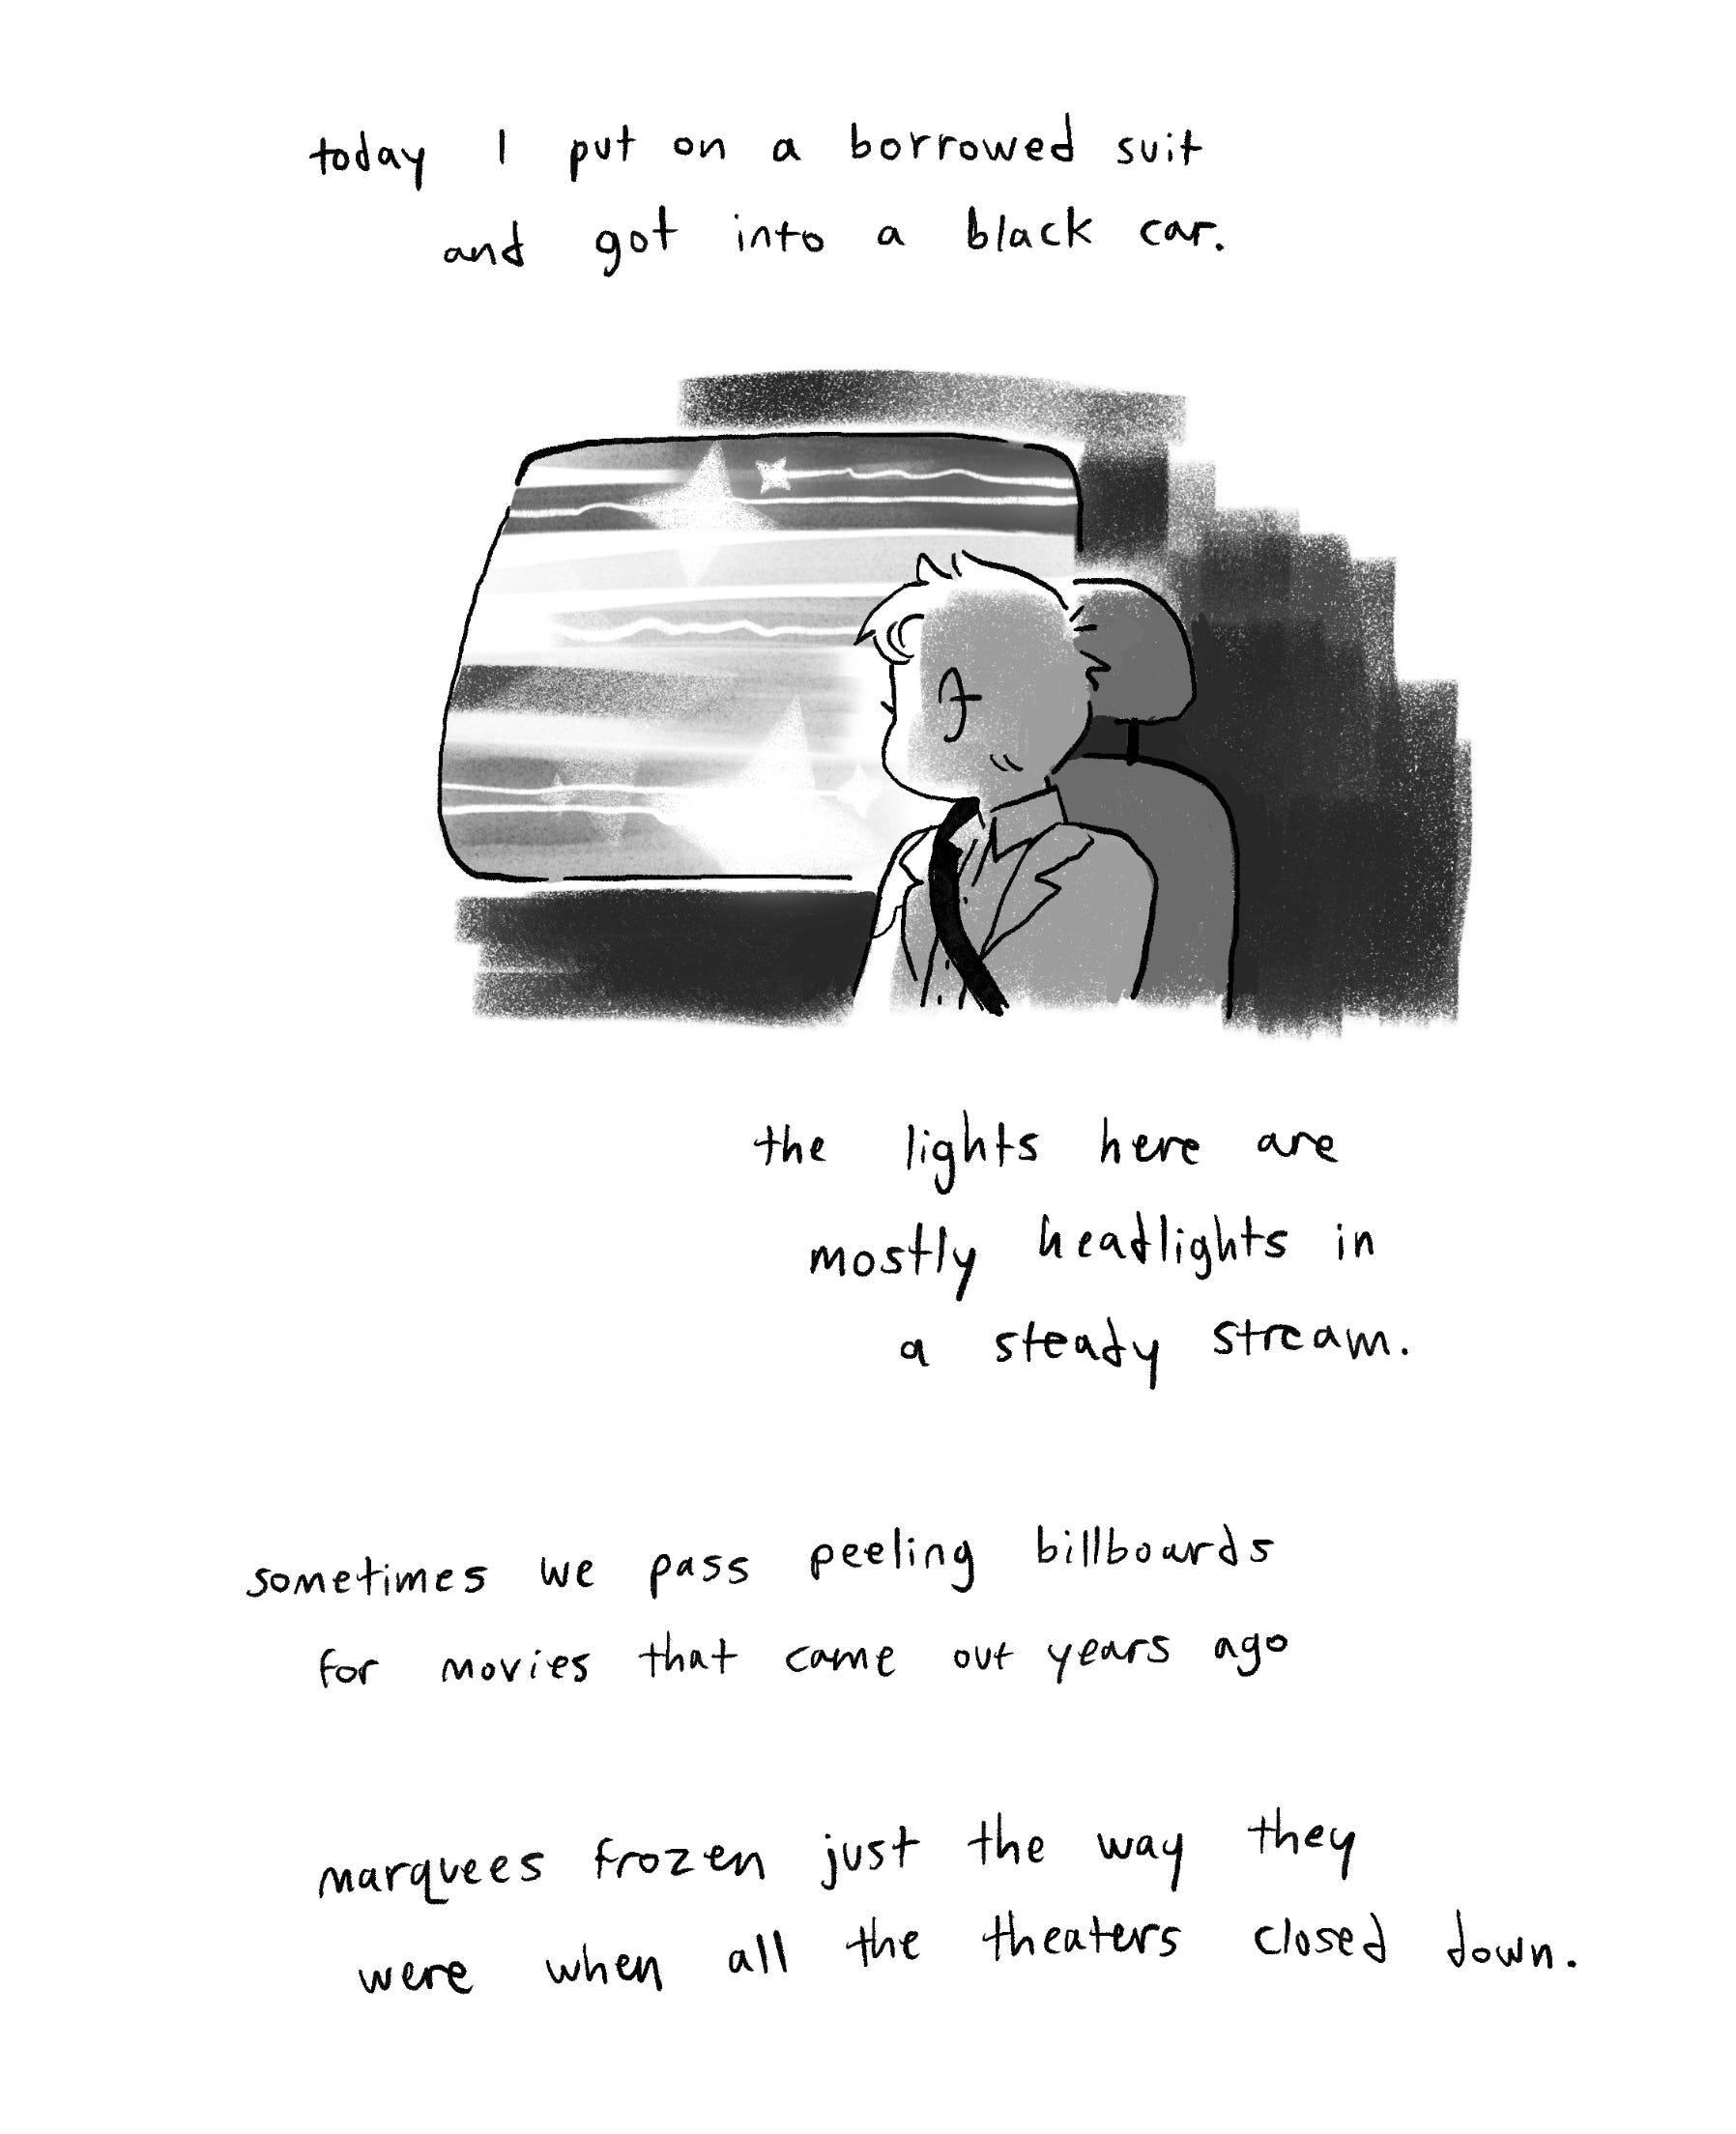 today I put on a borrowed suit
and got into a black car.
the lights here are
mostly headlights in
a steady stream.
sometimes we pass peeling billboards
for movies that came out years ago
marquees frozen just the way they
were when all the theaters closed down.